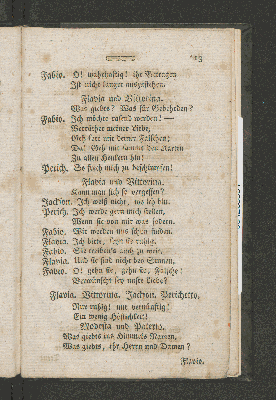 115
Fabio. O! wahrhaftig! ihr Betragen
Ist nicht länger auszustehen.
Flavia und Vittorina.
Was giebts? Was für Geberden?
Fabio. Ich möchte rasend werden! —
Verräther meiner Liebe,
Geh fort mit deiner Falschen!
Du! Geh mit sammt den Alten
Zu allen Henkern hin!
Perich. Sie schon mich zu beschimpfen!
Flavia und Vittorina.
Kann man sich so vergessen?
Jackson. Ich weiß nicht, wo ich bin.
Perich. Ich werde gern mich stellen,
Wenn sie von mir was fodern.
Fabio. Wir werden uns schon finden.
Flavia. Ich bitte, seyn sie ruhig.
Fabio. Sie treiben's auch zu weit.
Flavia. Und sie sind nicht bey Sinnen.
Fabio. O! gehn sie, gehn sie, Falsche!
Verwünscht sey unsre Liebe!
Flavia. Vittorina. Jackson. Perichetto.
Nur ruhig! nur vernünftig!
Ein wenig Höflichkeit!
Modesta und Valerio.
Was giebts ins Himmels Namen,
Was giebts, ihr Herrn und Damen?
Flavio.